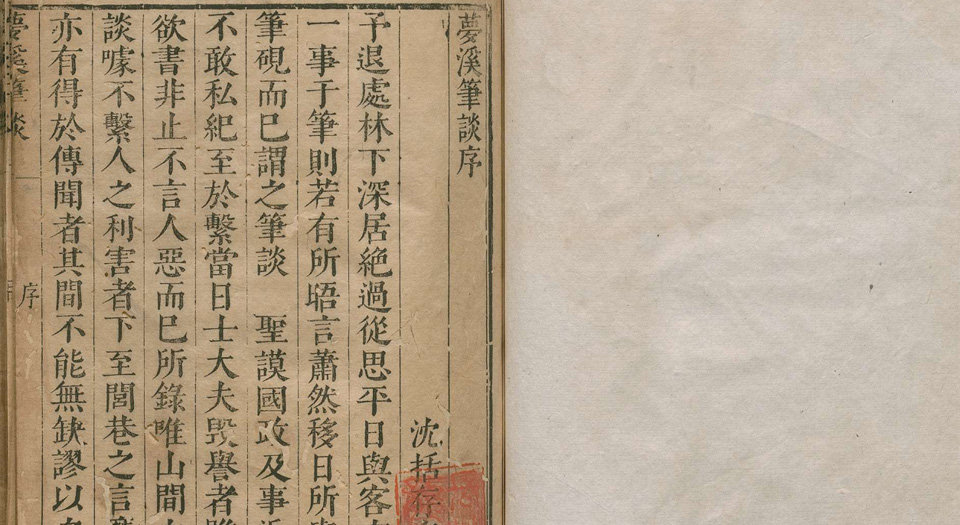 夢溪筆談序
沈括存
予退處林下深居絕過從思平日與客
一事于筆則若有所晤言蕭然移日所
筆硯而已謂之筆談　聖謨國政及事
不敢私紀至於繫當日士大夫毀譽者
欲書非止不言人惡而已所錄唯山間
談噱不繫人之利害者下至閭巷之言
亦有得於傳聞者其間不能無缺謬以
夢溪筆談
序